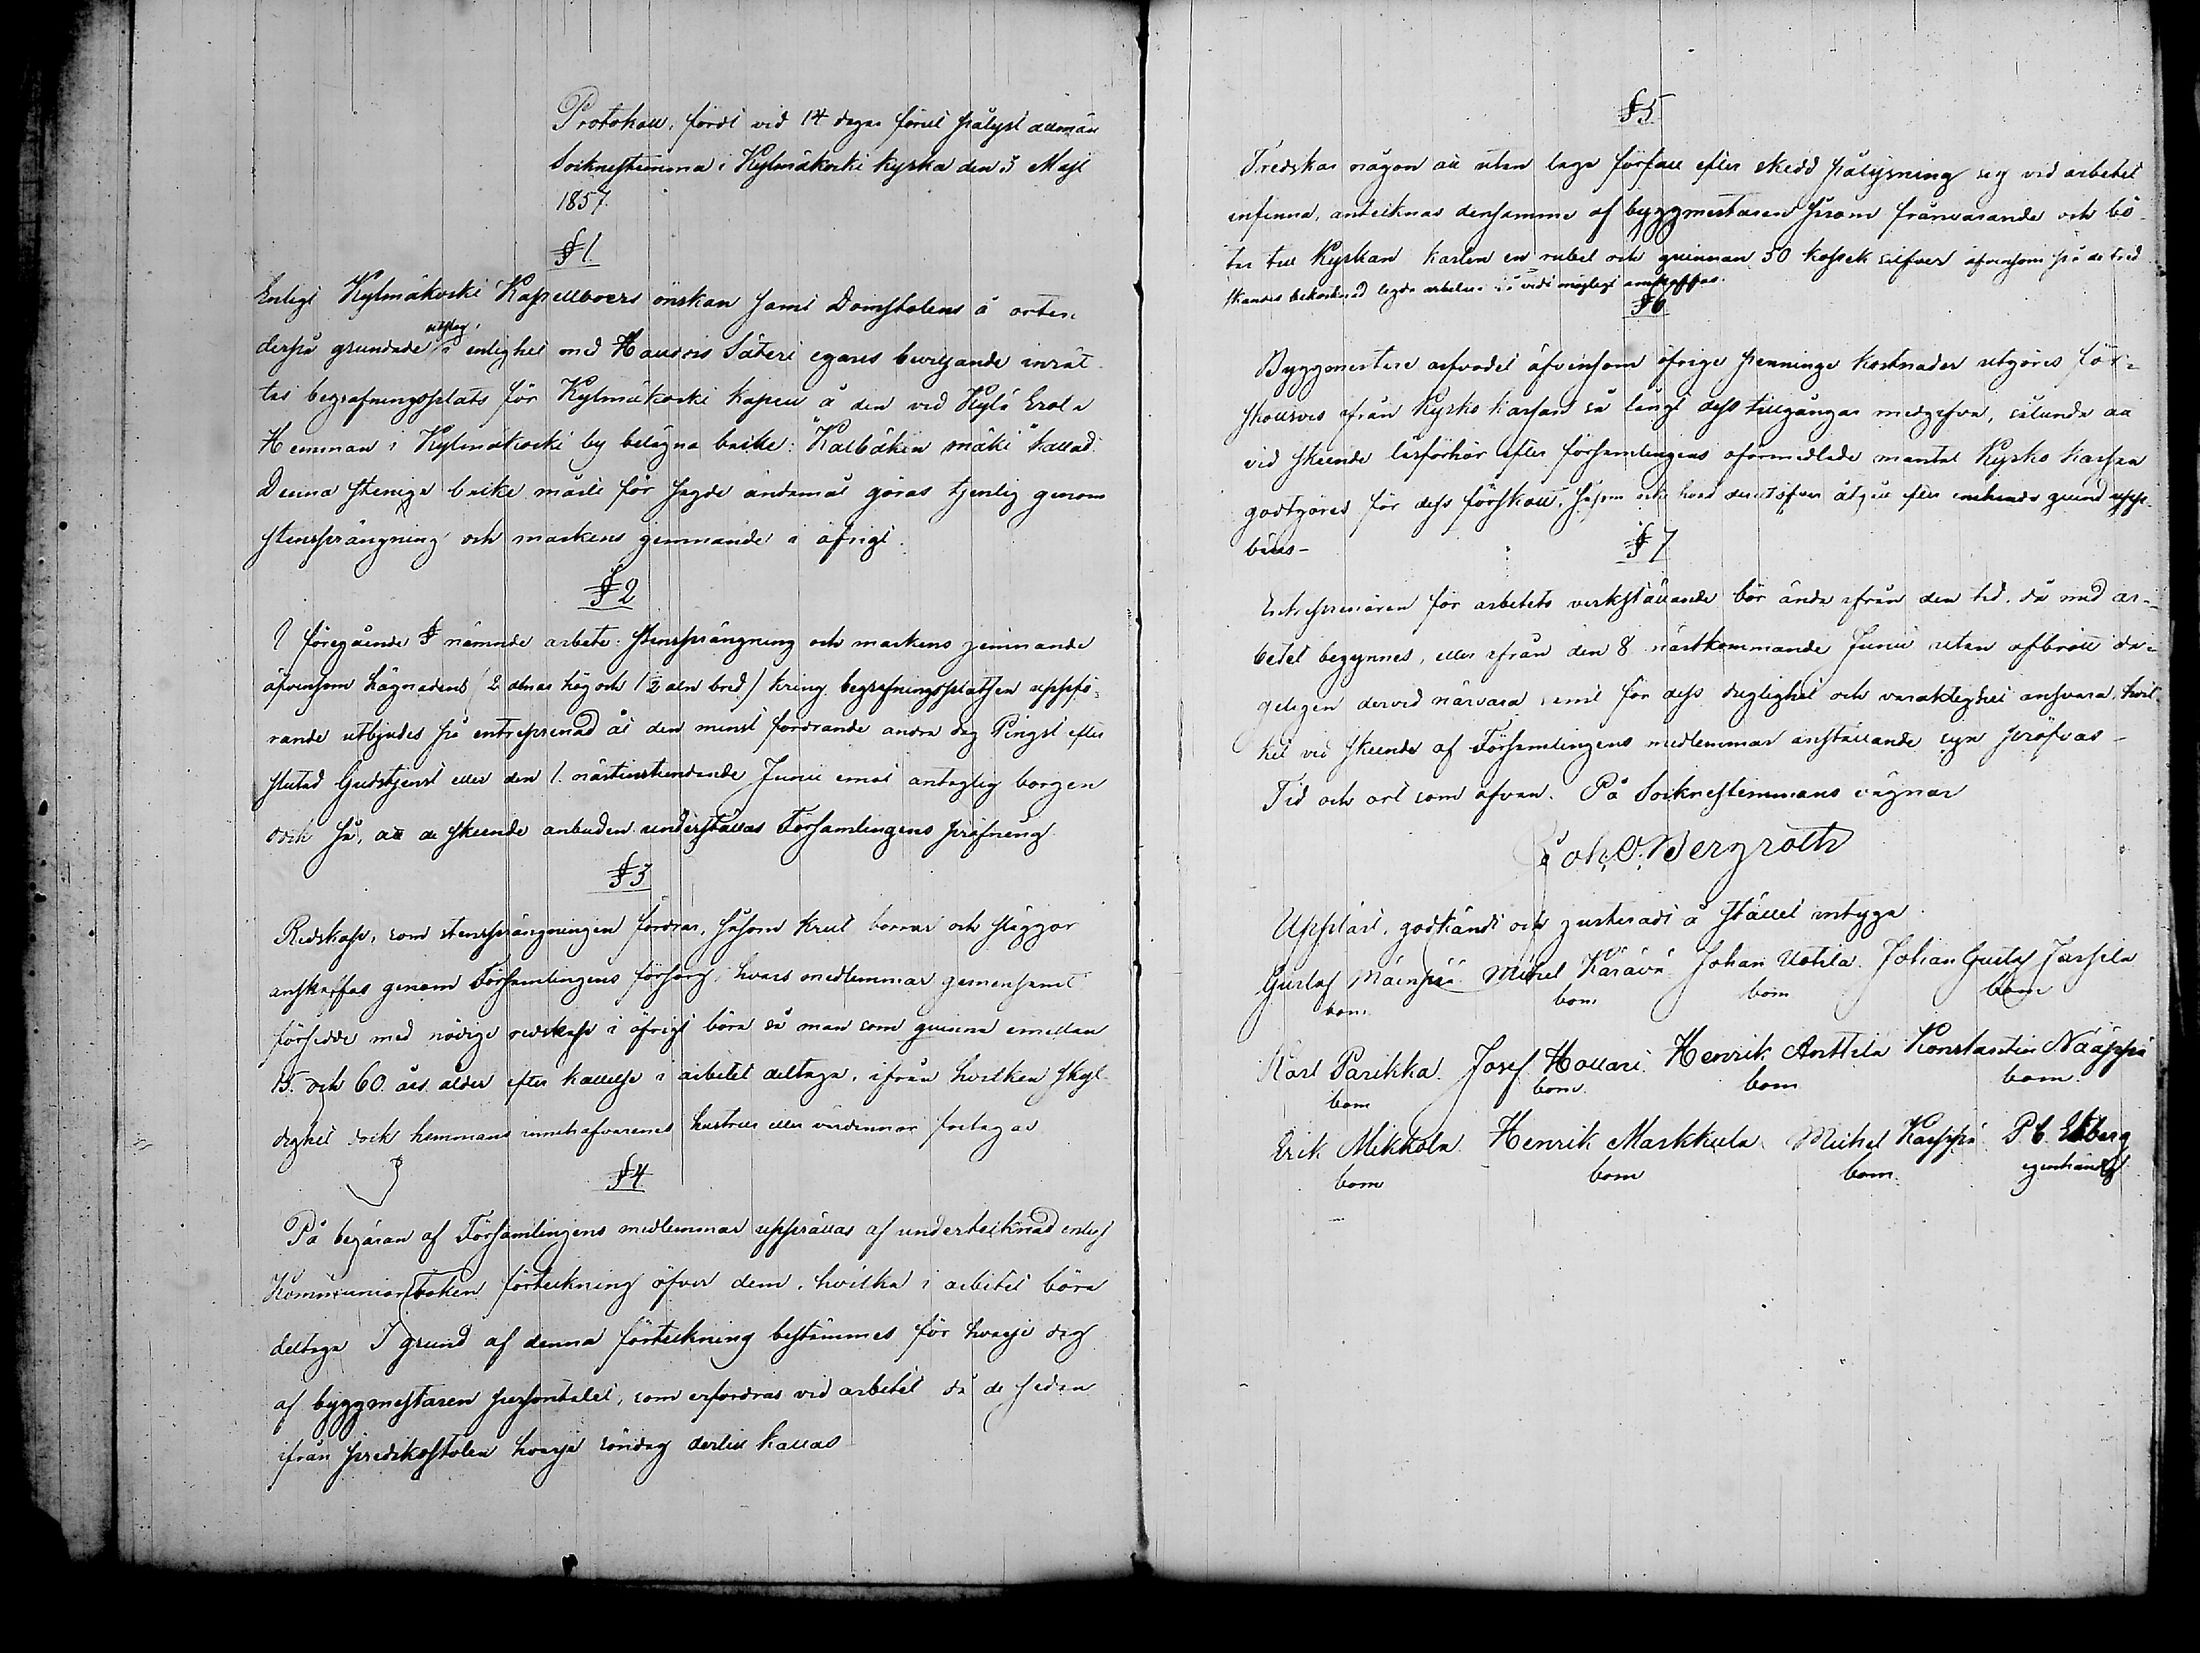 Protokoll, fördt vid 14 dagar förut pålyst allmän
Sockenstämma i Kylmäkoski kyrka den 3 Maji
1857.
§ 1.
Enligt Kylmäkoski Kapellboers önskan samt Domstolens å orten
derpå grundade utslag, i enlighet med Hauvois Säteri egares beviljande inrät-
tas begrafningsplats för Kylmäkoski kapell å den vid Kylä Erola
Hemman i Kylmäkoski by belägna backe: "Kalbåkin mäki" kallad.
Denna steniga backe måste för sagde ändamål göras tjenlig genom
stensprängning och markens jemnande i öfrigt.
§ 2
I föregående § nämnde arbete: stensprängning och markens jemnande
äfvensom hägnadens (2 alnar hög och 1/2 aln bred) kring begrafningsplatsen uppfö-
rande utbjudes på entreprenad åt den minst fordrande andra dag Pingst efter
slutad Gudstjenst eller den 1. nästinstundande Junii emot antaglig borgen
dock så, att de skeende anbuden underställas Församlingens pröfning.
§ 3
Redskap, som stensprängningen fordrar, såsom krut borrar och släggor
anskaffas genom Församlingens försorg, hvars medlemmar gemensamt
försedde med nödige redskap i öfrigt böra så man som qvinna emellan
15. och 60. års ålder efter kallelse i arbetet deltaga, ifrån hvilken skyl-
dighet dock hemmans innehafvarenes hustrur eller värdinnor fritagas
§ 4
På begäran af Församlingens medlemmar upprättas af undertecknad enligt
Kommunionboken förteckning öfver dem, hvilka i arbetet böra
deltaga I grund af denna förteckning bestämmes för hvarje dag
af byggmestaren persontalet, som erfordras vid arbetet då de sedan
ifrån predikostolen hvarje söndag dertill kallas
§ 5
Tredskas någon att utan laga förfall efter skedd pålysning sig vid arbetet
infinna, antecknas densamme af byggmestaren såsom frånvarande och bö-
tar till Kyrkan karlen en rubel och qvinnan 50 kopek silfver äfvensom på de tred
skandes bekostnad legda arbetare så vidt möjligt anskaffas.
§ 6
Byggmestare arfvodet äfvensom öfrige penninge kostnader utgöres för-
skottsvis ifrån Kyrko kassan så långt dess tillgångar medgifva, sålunda att
vid skeende läsförhör efter församlingens oförmedlade mantal Kyrko kassan
godtgöres för dess förskott, såsom ock hvad derutöfver åtgår efter enahanda grund upp-
bäres-
§ 7
Entreprenören för arbetets verkställande bör ända ifrån den tid, då med ar-
betet begynnes, eller ifrån den 8 nästkommande Junii utan afbrott da-
geligen dervid närvara samt för dess duglighet och varaktighet ansvara, hvil-
ket vid skeende af Församlingens medlemmar anställande syn pröfvas-
Tid och ort som ofvan. På Sockenstämmans vägnar
Joh. O. Bergroth
Uppläst, godkändt och justeradt å stället intyga
Gustaf Mäenpää Michel Kärävä Johan Uotila. Johan Gustaf Jussila
bom. bom bom bom
Karl Parikka. Josef Hollari. Henrik Anttila Konstantin Nääppä
bom bom. bom bom.
Erik Mikkola. Henrik Markkula Michel Kaappä P. C. Ekberg
bom bom bom. egenhändigt